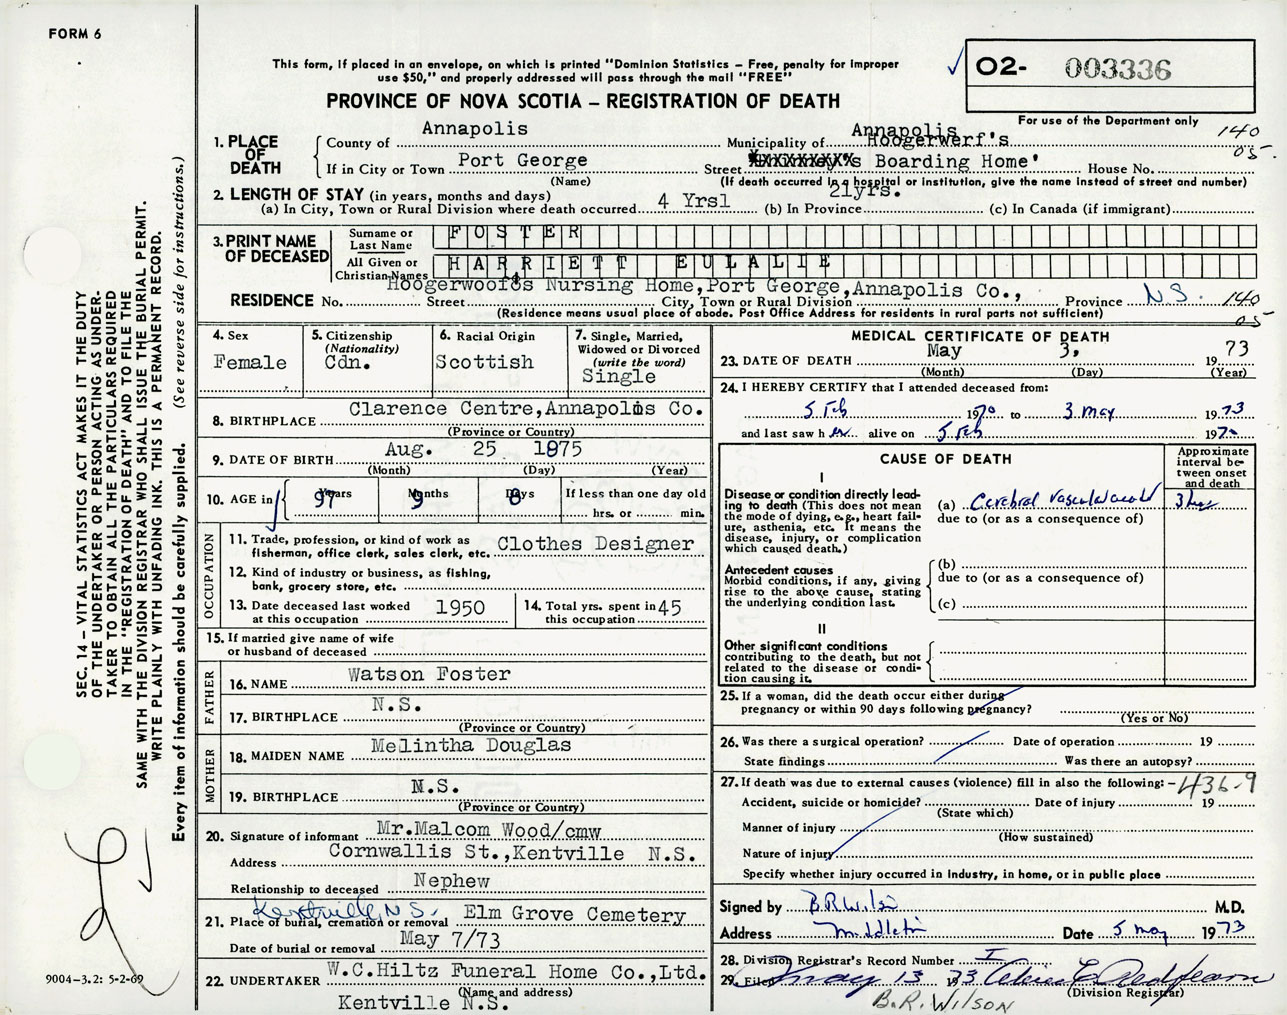 FORM 6
This form, if placed in an envelope, on which is printed "Dominion Statistics – Free, penalty for improper
use $50," and properly addressed will pass through the mail "FREE"
PROVINCE OF NOVA SCOTIA – REGISTRATION OF DEATH
02- 003336
For use of the Department only
140
05-
1. PLACE OF DEATH
County of Annapolis Municipality of Annapolis
Hoogerwerf's
If in City or Town Port George Street Boarding Home' House No.
(Name) (If death occurred in a hospital or institution, give the name instead of street and number)
2. LENGTH OF STAY (in years, months and days)
(a) In City, Town or Rural Division where death occurred 4 Yrsl (b) In Province 21yrs. (c) In Canada (if immigrant)
3. PRINT NAME OF DECEASED
Surname or Last Name FOSTER
All Given or Christian Names HARRIETT EULALIE
Hoogerwoof's Nursing Home,Port George,Annapolis Co.,
RESIDENCE No. Street City, Town or Rural Division Province N.S. 140
05-
(Residence means usual place of abode. Post Office Address for residents in rural parts not sufficient)
4. Sex
Female
5. Citizenship
(Nationality)
Cdn.
6. Racial Origin
Scottish
7. Single, Married,
Widowed or Divorced
(write the word)
Single
8. BIRTHPLACE Clarence Centre,Annapolis Co.
(Province or Country)
9. DATE OF BIRTH Aug. 25 1875
(Month) (Day) (Year)
10. AGE in 97 Years 9 Months 8 Days If less than one day old
hrs. or min.
OCCUPATION
11. Trade, profession, or kind of work as
fisherman, office clerk, sales clerk, etc. Clothes Designer
12. Kind of industry or business, as fishing,
bank, grocery store, etc.
13. Date deceased last worked
at this occupation 1950
14. Total yrs. spent in
this occupation 45
15. If married give name of wife
or husband of deceased
FATHER
16. NAME Watson Foster
17. BIRTHPLACE N.S.
(Province or Country)
MOTHER
18. MAIDEN NAME Melintha Douglas
19. BIRTHPLACE N.S.
(Province or Country)
20. Signature of informant Mr.Malcom Wood/cmw
Address Cornwallis St.,Kentville N.S.
Relationship to deceased Nephew
Kentville, N S.
21. Place of burial, cremation or removal Elm Grove Cemetery
Date of burial or removal May 7/73
22. UNDERTAKER W.C.Hiltz Funeral Home Co.,Ltd.
(Name and address)
Kentville N.S.
MEDICAL CERTIFICATE OF DEATH
23. DATE OF DEATH May 3, 19 73
(Month) (Day) (Year)
24. I HEREBY CERTIFY that I attended deceased from:
5 Feb 1970 to 3 May 1973
and last saw her alive on 5 Feb 1970
CAUSE OF DEATH
Approximate
interval be-
tween onset
and death
I
Disease or condition directly lead-
ing to death (This does not mean
the mode of dying, e.g., heart fail-
ure, asthenia, etc. It means the
disease, injury, or complication
which caused death.)
(a) Cerebral vascular
due to (or as a consequence of)
Antecedent causes
Morbid conditions, if any, giving
rise to the above cause, stating
the underlying condition last.
(b)
due to (or as a consequence of)
(c)
II
Other significant conditions
contributing to the death, but not
related to the disease or condi-
tion causing it.
25. If a woman, did the death occur either during
pregnancy or within 90 days following pregnancy?
(Yes or No)
26. Was there a surgical operation? Date of operation 19
State findings Was there an autopsy?
27. If death was due to external causes (violence) fill in also the following: - 436-9
Accident, suicide or homicide? Date of injury 19
(State which)
Manner of injury
(How sustained)
Nature of injury
Specify whether injury occurred in Industry, in home, or in public place
Signed by B.R.Wilson M.D.
Address Middleton Date 5 May 1973
28. Division Registrar's Record Number I
29. Filed May 13 1973
(Division Registrar)
B.R. WILSON
SEC. 14 – VITAL STATISTICS ACT MAKES IT THE DUTY
OF THE UNDERTAKER OR PERSON ACTING AS UNDER-
TAKER TO OBTAIN ALL THE PARTICULARS REQUIRED
IN THE "REGISTRATION OF DEATH" AND TO FILE THE
SAME WITH THE DIVISION REGISTRAR WHO SHALL ISSUE THE BURIAL PERMIT.
WRITE PLAINLY WITH UNFADING INK. THIS IS A PERMANENT RECORD.
Every item of information should be carefully supplied. (See reverse side for instructions.)
9004-3.2: 5-2-69